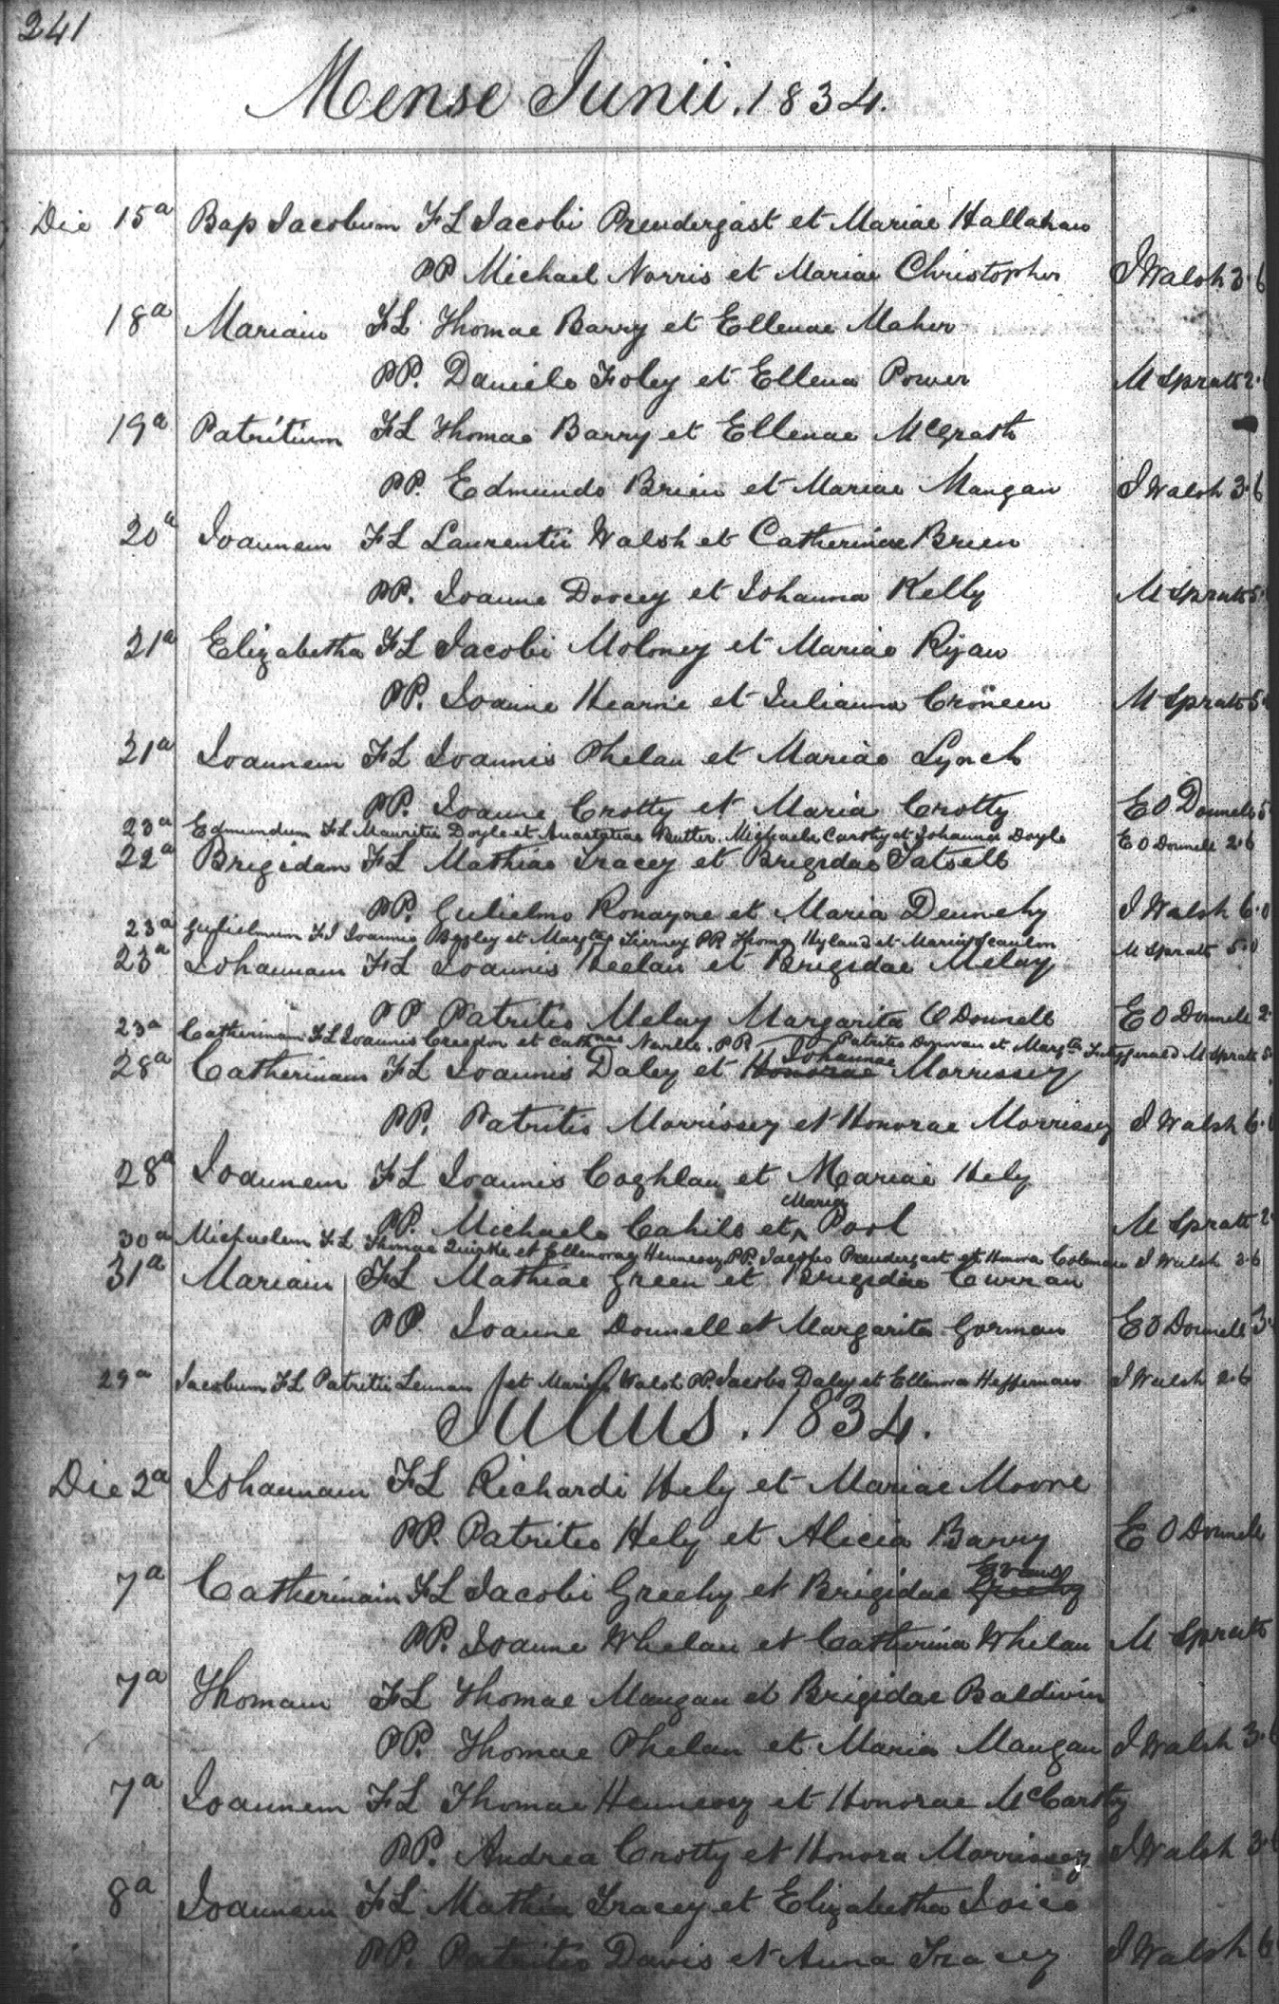 241
Mense Junii. 1834.
Die 15a Bap Jacobum FL Jacobi Prendergast et Mariae Hallahan
PP Michael Norris et Mariae Christopher J Walsh 3.6
18a Mariam FL Thomae Barry et Ellenae Maher
PP. Daniele Foley et Ellena Power M Spratt 2.
19a Patritium FL Thomae Barry et Ellenae McGrath
PP. Edmundo Brien et Mariae Mangan J Walsh 3.6
20a Joannem FL Laurentii Walsh et Catherinae Brien
PP. Joanne Dorcey et Johanna Kelly M Spratt 5.
21a Elizabetha FL Jacobi Moloney et Mariae Ryan
PP. Joanne Hearne et Julianna Croneen M Spratt 5
21a Joannem FL Joannis Phelan et Mariae Lynch
PP. Joanne Crotty et Maria Crotty E O Donnell 5
23a Edmundum FL Mauritii Doyle et Anastatiae Butler. Michaele Carthy et Johanna Doyle E O Donnell 2.6
22a Brigidam FL Mathiae Tracey et Brigidae
PP. Gulielmo Ronayne et Maria Dennehy J Walsh 6.0
23a Gulielmum FL Joannis Begley et Margtae Tierney PP Thoma Hyland et Maria Scanlon M Spratt 5.0
23a Johannam FL Joannis Keelan et Brigidae Melay
PP Patritio Melay Margarita O Donnell E O Donnell 2.
23a Catherinam FL Joannis Creedon et Cathnae Neville. PP Patritio Donovan et Margta Fitzgerald M Spratt 5
28a Catherinam FL Joannis Daley et Honorae Johannae Morrissey
PP. Patritio Morrissey et Honorae Morrissey J Walsh 6.
28a Joannem FL Joannis Coghlan et Mariae Hely
PP. Michaele Cahill et Maria Pool M Spratt 2.
30a Michaelem FL Thomae Quirke et Ellenorae Hennessy PP. Jacobo Prendergast et Honora Coleman J Walsh 2.6
31a Mariam FL Mathiae Green et Brigidae Curran
PP Joanne Donnell et Margarita Gorman E O Donnell 3.
29a Jacobum FL Patritii Lennan et Mariae Walsh PP. Jacobo Daley et Ellenora Heffernan J Walsh 2.6
Julius. 1834.
Die 2a Johannam FL Richardi Hely et Mariae Moore
PP. Patritio Hely et Alicia Barry E O Donnell
7a Catherinam FL Jacobi Greehy et Brigidae Greehy Evans
PP. Joanne Whelan et Catherina Whelan M Spratt
7a Thomam FL Thomae Mangan et Brigidae Baldwin
PP. Thomae Phelan et Maria Mangan J Walsh 3.
7a Joannem FL Thomae Hennessy et Honorae McCarthy
PP. Andrea Crotty et Honora Morrissey J Walsh 3.
8a Joannem FL Mathia Tracey et Elizabetha Joice
PP. Patritio Davis et Anna Tracey J Walsh 6